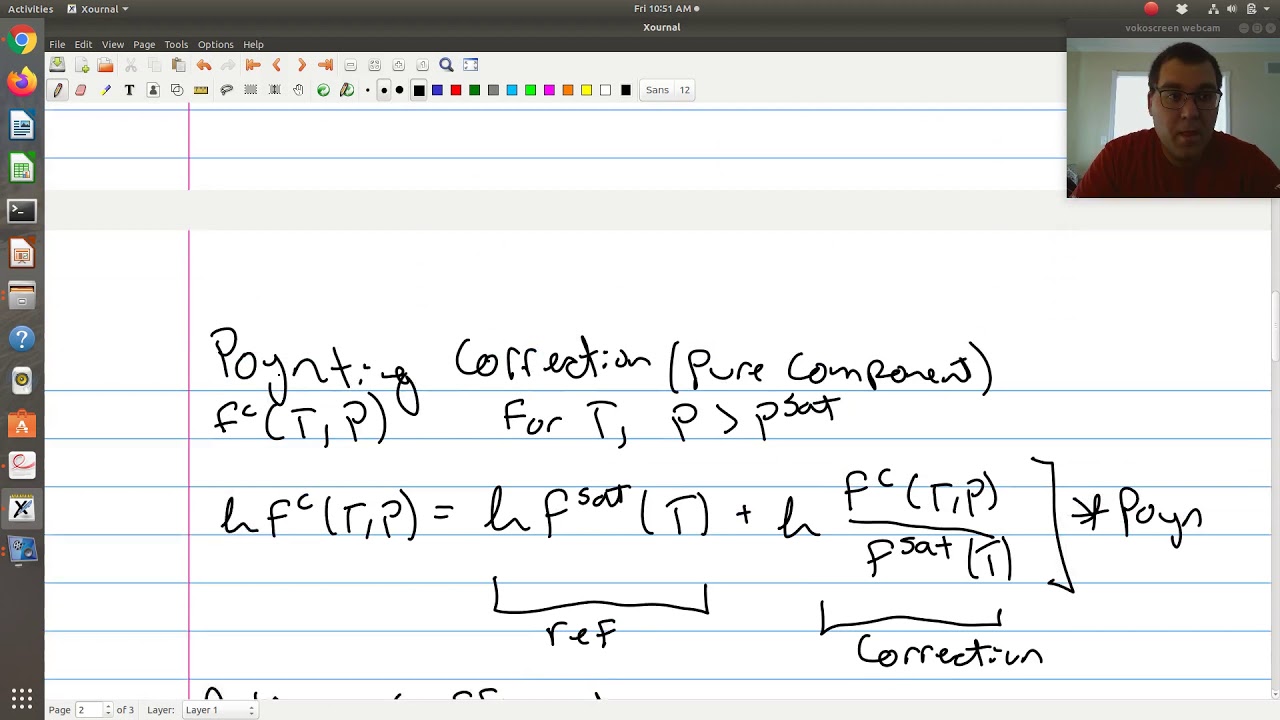 Activities Xournal Fri 10:51 AM
Xournal
vokoscreen webcam
File Edit View Page Tools Options Help
T Sans 12
Poynting Correction (Pure Component)
f^c(T, P) For T, P > P^sat
ln f^c(T,P) = ln f^sat (T) + ln f^c(T,P) / f^sat(T) ] * Poyn
ref
Correction
Page 2 of 3 Layer: Layer 1